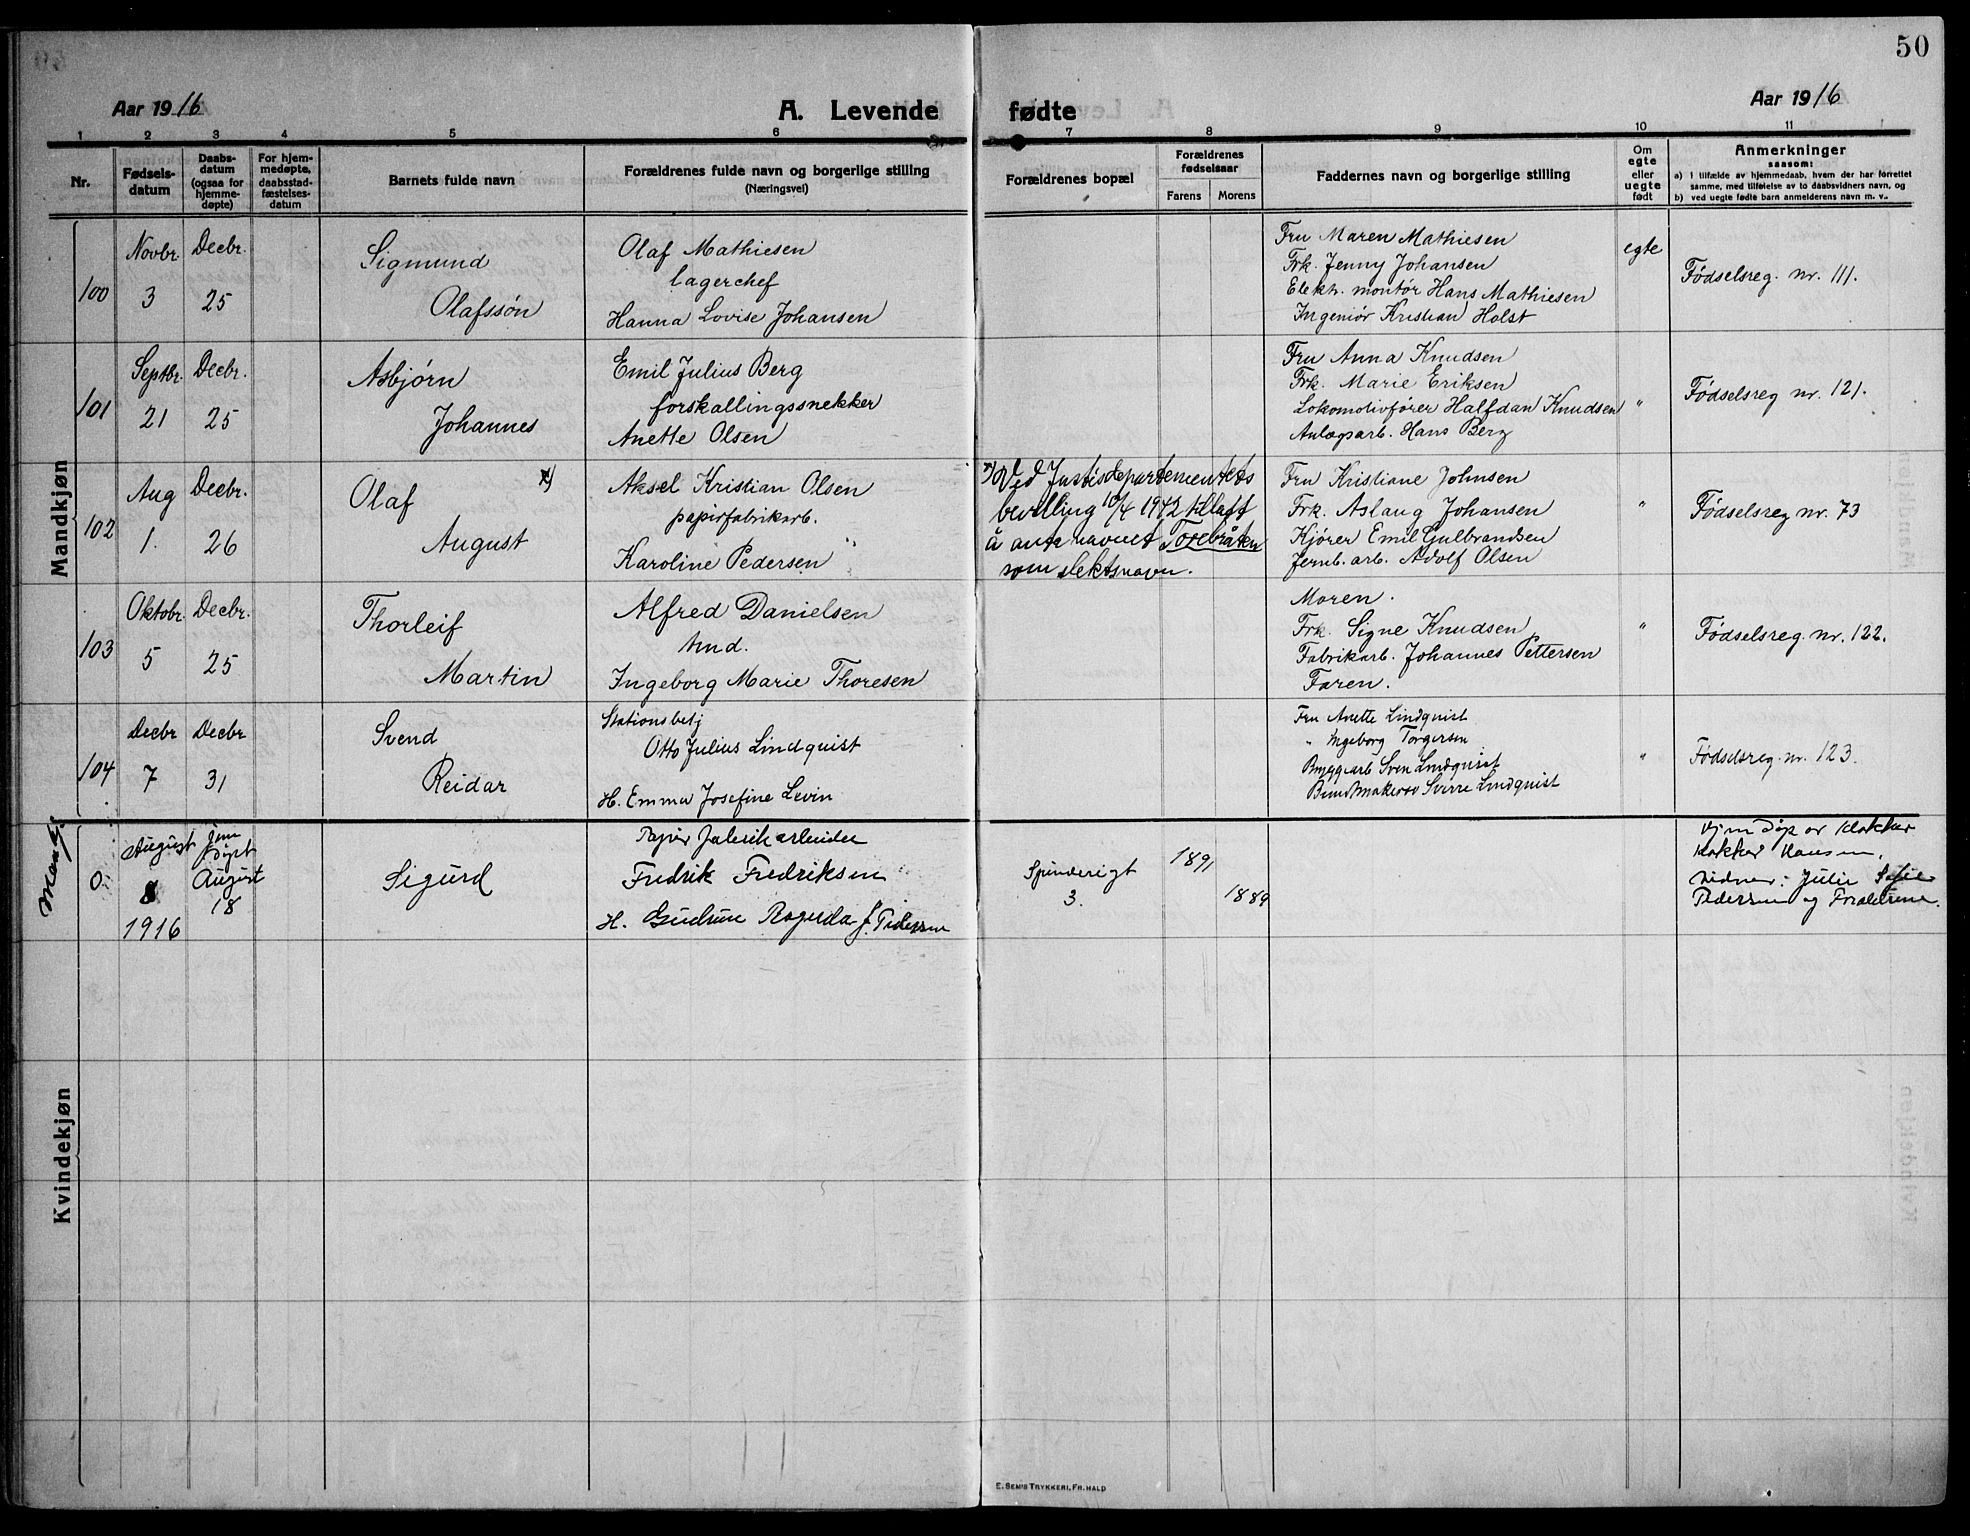 50
Aar 1916
A. Levende
fødte
Aar 1916
1 2 3 4 5 6 7 8 9 10 11
Nr.
Fødsels-
datum
Daabs-
datum
(ogsaa for
hjemme-
døpte)
For hjem-
medøpte,
daabsstad-
fæstelses-
datum
Barnets fulde navn
Forældrenes fulde navn og borgerlige stilling
(Næringsvei)
Forældrenes bopæl
Forældrenes
fødselsaar
Farens
Morens
Faddernes navn og borgerlige stilling
Om
egte
eller
uegte
født
Anmerkninger
saasom:
a) I tilfælde av hjemmedaab, hvem der har forrettet
samme, med tilføielse av to daabsvidners navn, og
b) ved uegte fødte barn anmelderens navn m. v..
Mandkjøn
100
Novbr.
3
Decbr.
25
Sigmund
Olafssön
Olaf Mathiesen
lagerchef
Hanna Lovise Johansen
Fru Maren Mathiesen
Frk. Jenny Johansen
Elektr. montör Hans Mathiesen
Ingeniör Kristian Holst
egte
Födselsreg. nr. 111.
101
Septbr.
21
Decbr.
25
Asbjørn
Johannes
Emil Julius Berg
forskallingssnekker
Anette Olsen
Fru Anna Knudsen
Frk. Marie Eriksen
Lokomotivfører Halfdan Knudsen
Anlægsarb. Hans Berg
"
Födselsreg nr. 121.
102
Aug
1.
Decbr.
26
Olaf x)
August
Aksel Kristian Olsen
papirfabrikarb.
Karoline Pedersen "
x) Ved Justisdepartementets
bevilling 10/4 1942 tillatt
å anta navnet Torebråten
som slektsnavn.
Fru Kristiane Johnsen
Frk. Aslaug Johansen
Kjører Emil Gulbrandsen
Jernb. arb. Adolf Olsen
"
Födselsreg nr. 73
103
Oktobr.
5
Decbr.
25
Thorleif
Martin
Alfred Danielsen
Ingeborg Marie Thoresen
Moren.
Frk. Signe Knudsen
Fabrikarb. Johannes Pettersen
Faren.
"
Födselsreg. nr. 122.
104
Decbr
7
Decbr
31
Svend
Reidar
Stationsbetj
Otto Julius Lindquist
H. Emma Josefine Levin
Fru Anette Lindquist
" Ingeborg Torgersen
Byggearb Sven Lindquist
Sverre Lindquist
"
Födselsreg. nr. 123.
0
August
8
1916
döpt
August
18
Sigurd
Papirfabrikarbeider
Fredrik Fredriksen
H. Gudrun Ragnda f. Pedersen
Spinderigt
3.
1891
1889
Hjemdöp av klokker
klokker Hansen.
Vidner: Julie Sofie
Pedersen og Forældrene.
Kvindekjøn
E. SEM'S TRYKKERI, FR. HALD